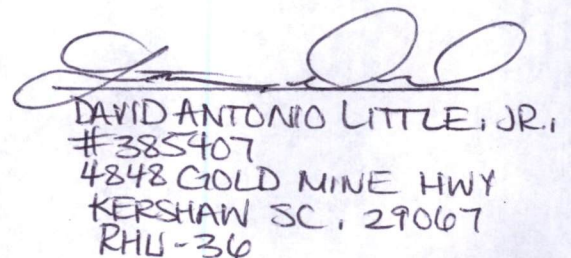 DAVID ANTONIO LITTLE, JR.,
#385407
4848 GOLD MINE HWY
KERSHAW SC. 29067
RHU-36